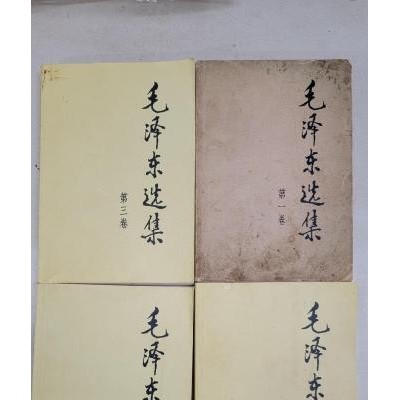 毛泽东选集
第三卷
毛泽东选集
第一卷
毛泽东
毛泽东